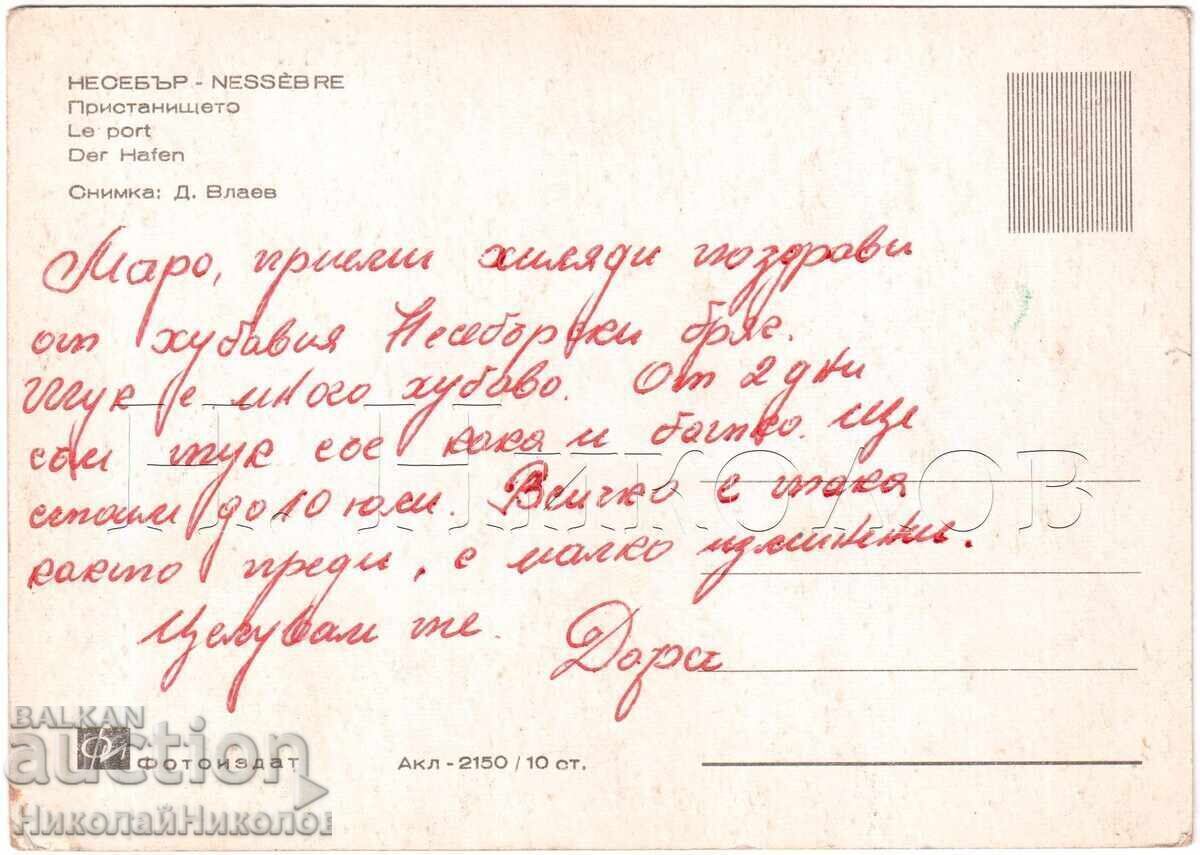 НЕСЕБЪР - NESSÈBRE
Пристанището
Le port
Der Hafen
Снимка: Д. Влаев
Маро, приеми хиляди поздрави
от хубавия Несебърски бряг.
Тук е много хубаво. От 2 дни
съм тук със кака и батко. Ще
стоим до 10 юли. Всичко е така
както преди, с малко измінени.
Целувам те. Дора
Н. НИКОЛОВ
BALKAN
auction
Фотоиздат
Акл - 2150 / 10 ст.
НиколайНиколов